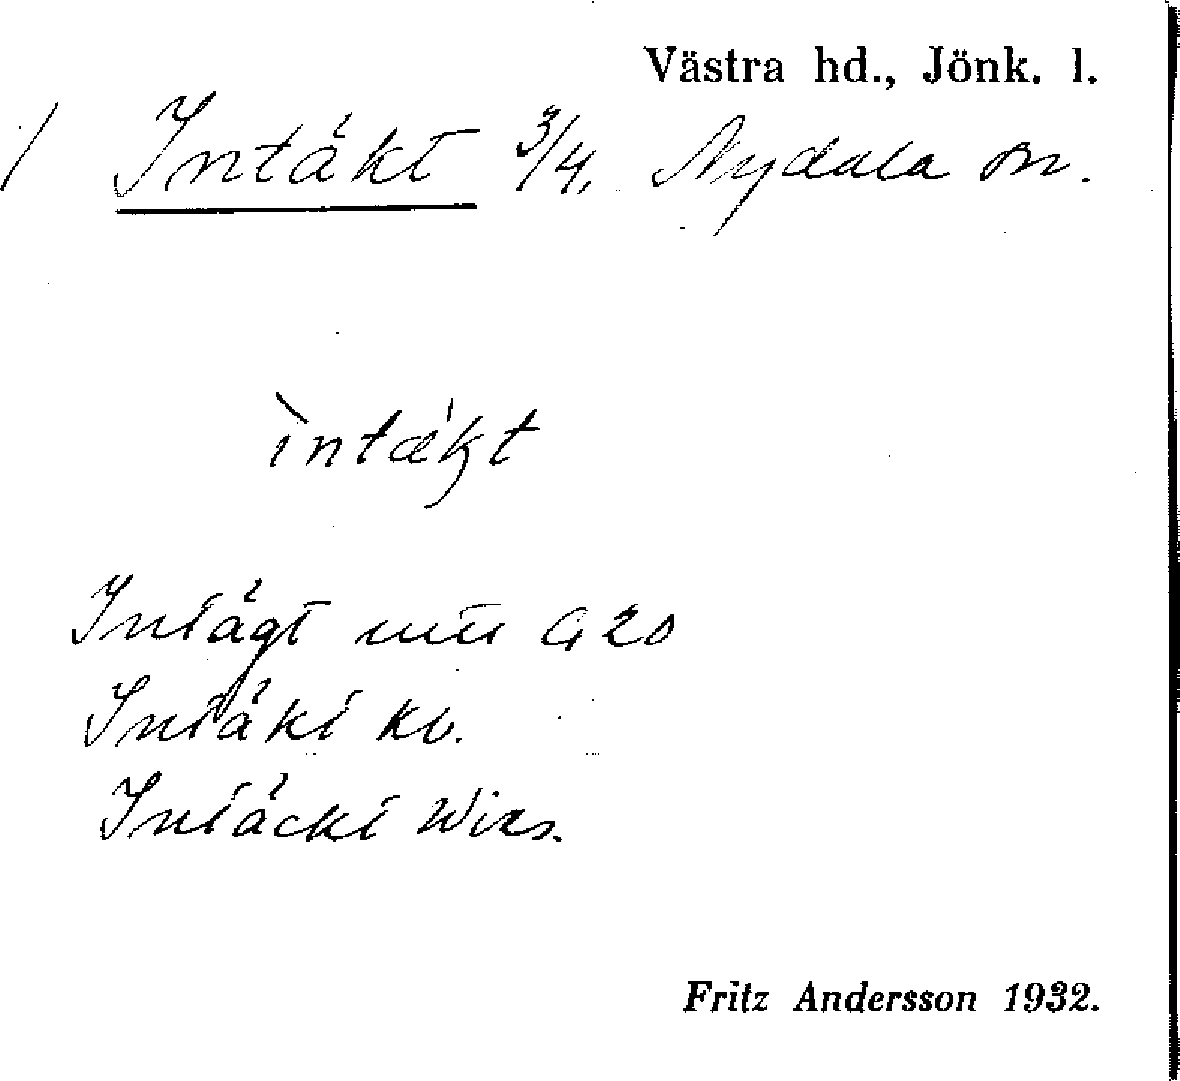 Västra hd., Jönk. l.
/ Intäkt 3/4, Nydala sn.
ìntǽkt
Intägt utu G 20
Intäkt Kb.
Intäckt Wies.
Fritz Andersson 1932.